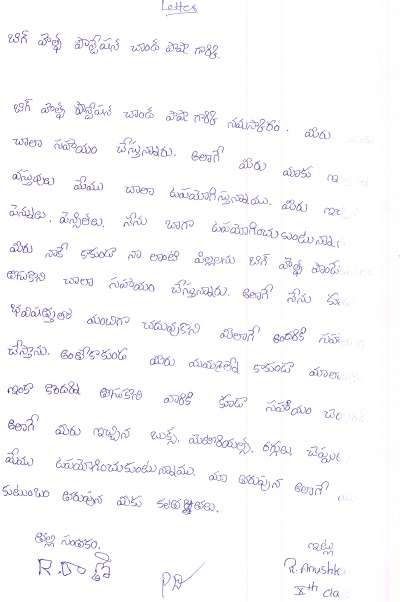 Letter
బిగ్ హెల్ప్ ఫౌండేషన్ చాంద్ పాషా గారికి.
బిగ్ హెల్ప్ ఫౌండేషన్ చాంద్ పాషా గారికి నమస్కారం. మీరు
చాలా సహాయం చేస్తున్నారు. అలాగే మీరు మాకు
వస్తువులు మేము చాలా ఉపయోగిస్తున్నాము. మీరు
పెన్నులు, పెన్సిళ్లు, నేను బాగా ఉపయోగించుకుంటున్నా
మీరు నాకే కాకుండా నా లాంటి పిల్లలను బిగ్ హెల్ప్
ఆదుకుని చాలా సహాయం చేస్తున్నారు. అలాగే నేను
భవిష్యత్తులో మంచిగా చదువుకుని మీలాగే అందరికీ
చేస్తాను. అంతేకాకుండా మీరు మమ్మల్నే కాకుండా
ఇంకా కొందరిని ఆదుకుని వారికి కూడా సహాయం
అలాగే మీరు ఇచ్చిన బుక్స్, మెటీరియల్స్,
మేము ఉపయోగించుకుంటున్నాము. మా తరుపున అలాగే
కుటుంబం తరుపున మీకు కృతజ్ఞతలు.
తల్లి సంతకం. ఇట్లు
R. Anushk
Xth Cla